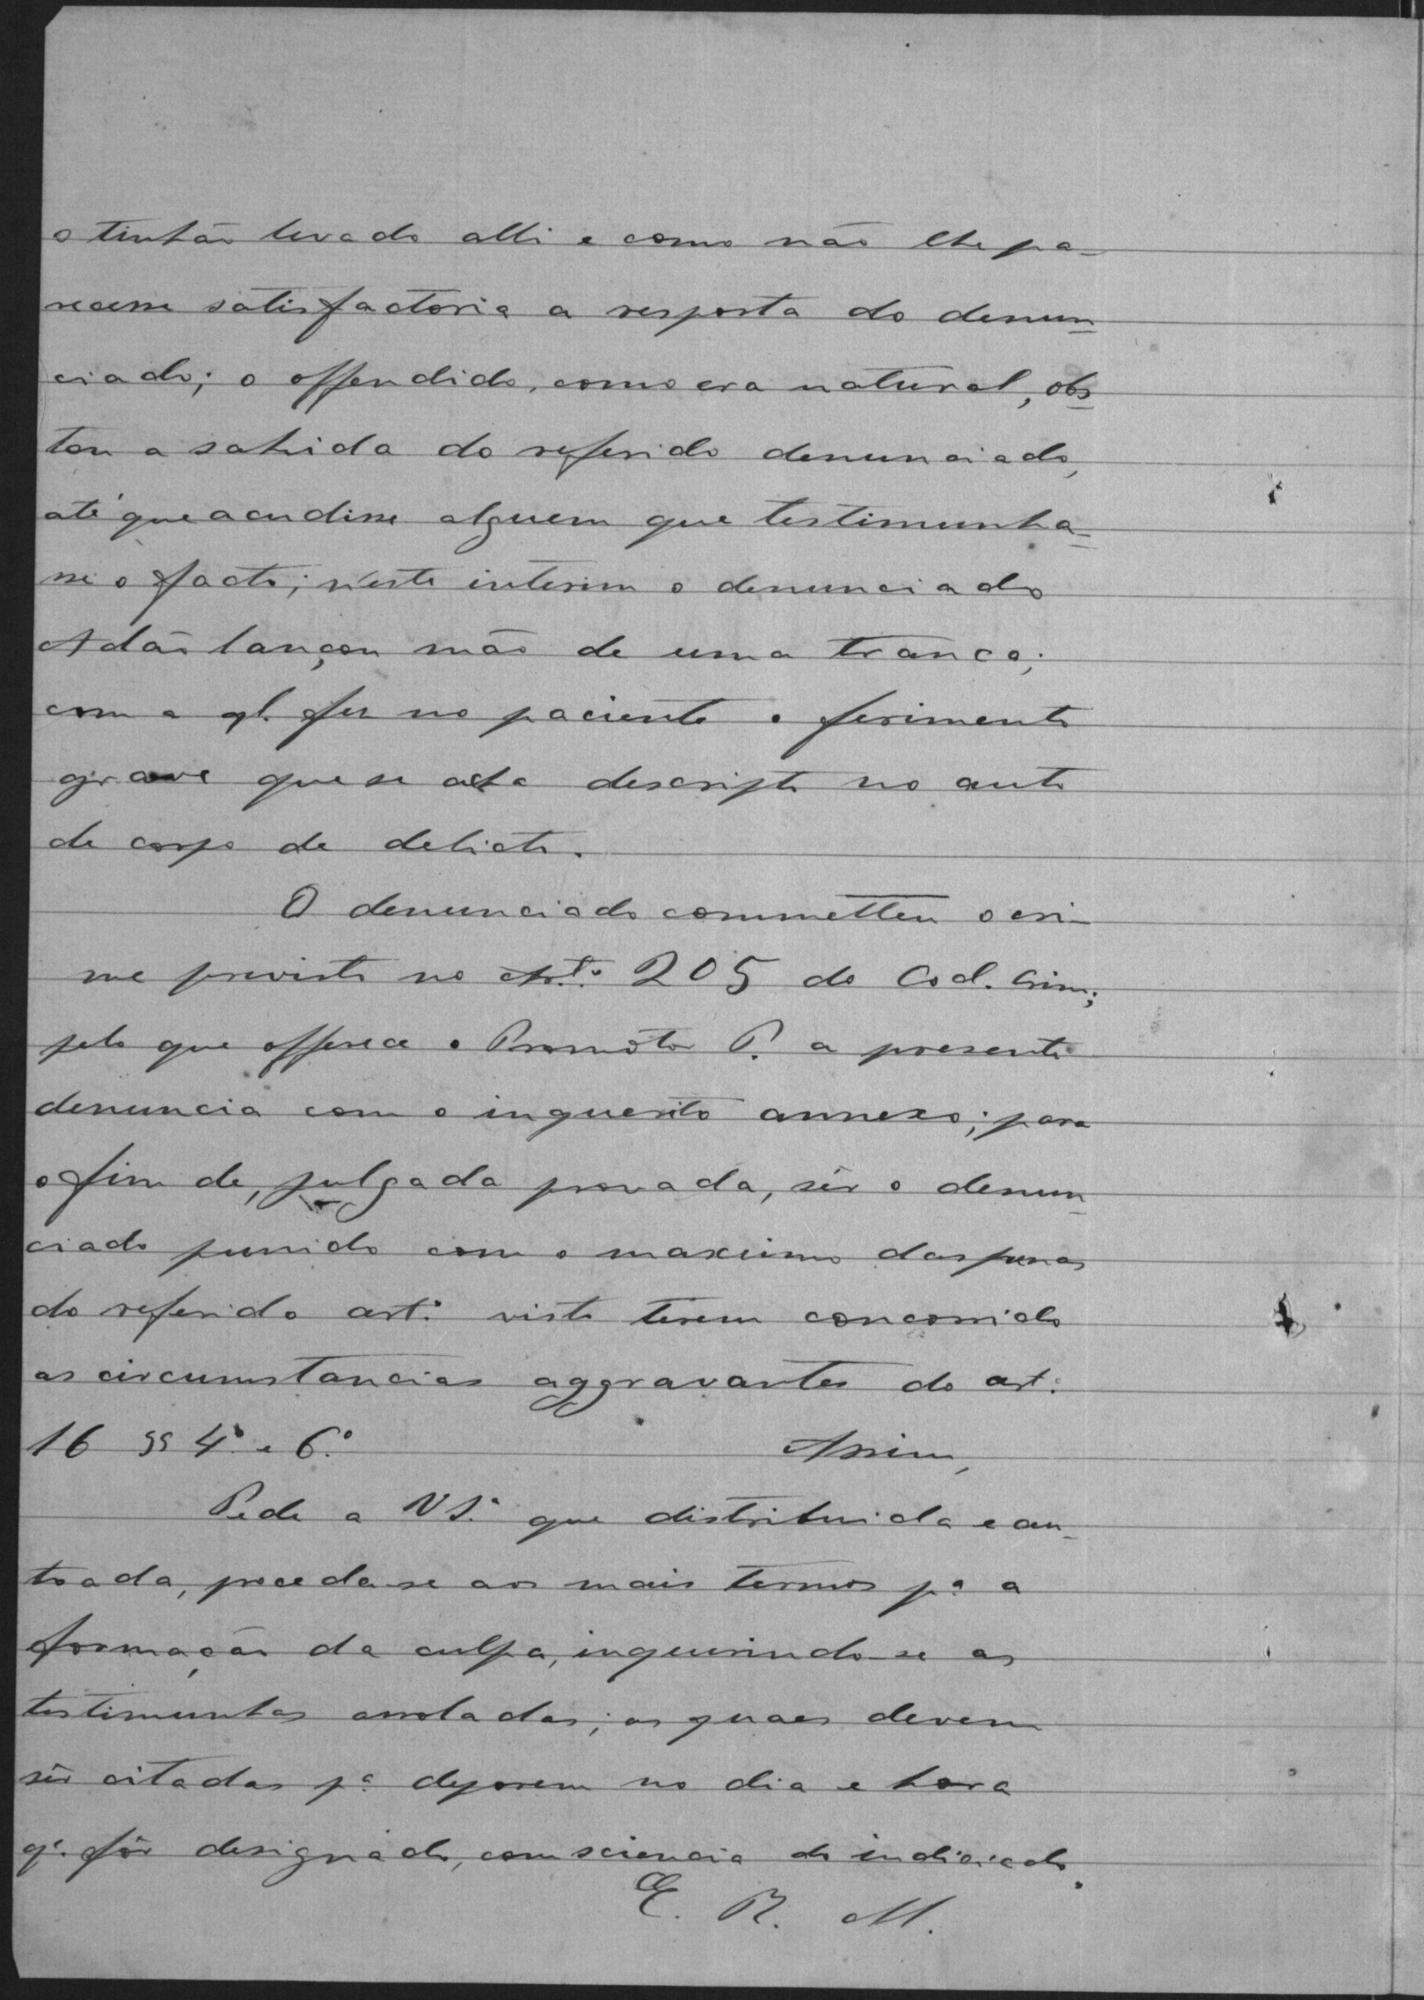 o tinhão levado alli e como não lhe pa-
recesse satisfactoria a resposta do denun-
ciado; o offendido, como era natural, obs-
tou a sahida do referido denunciado,
até que acudisse alguem que testimunha-
se o facto; n'este interim o denunciado
Adão lançou mão de uma tranca;
com a ql. fez no paciente o ferimento
grave que se acha descripto no auto
de corpo de delicto.
O denunciado commetteu o cri-
me previsto no Art.º 205 do Cod. Crim;
pelo que offerece o Promotor P. a presente
denuncia com o inquerito annexo; para
o fim de, julgada provada, sêr o denun-
ciado punido com o maximo das penas
do referido art.º visto terem concorrido
as circumstancias aggravantes do art.º
16 §§ 4º e 6.º Assim,
Pede a V S.ª que distribuida e au-
toada, proceda-se aos mais termos p.ª a
formação da culpa, inquirindo-se as
testimunhas arroladas; as quaes devem
sêr citadas p.ª deporem no dia e hora
q'. fôr designado, com sciencia do indiciado.
E. R. M.